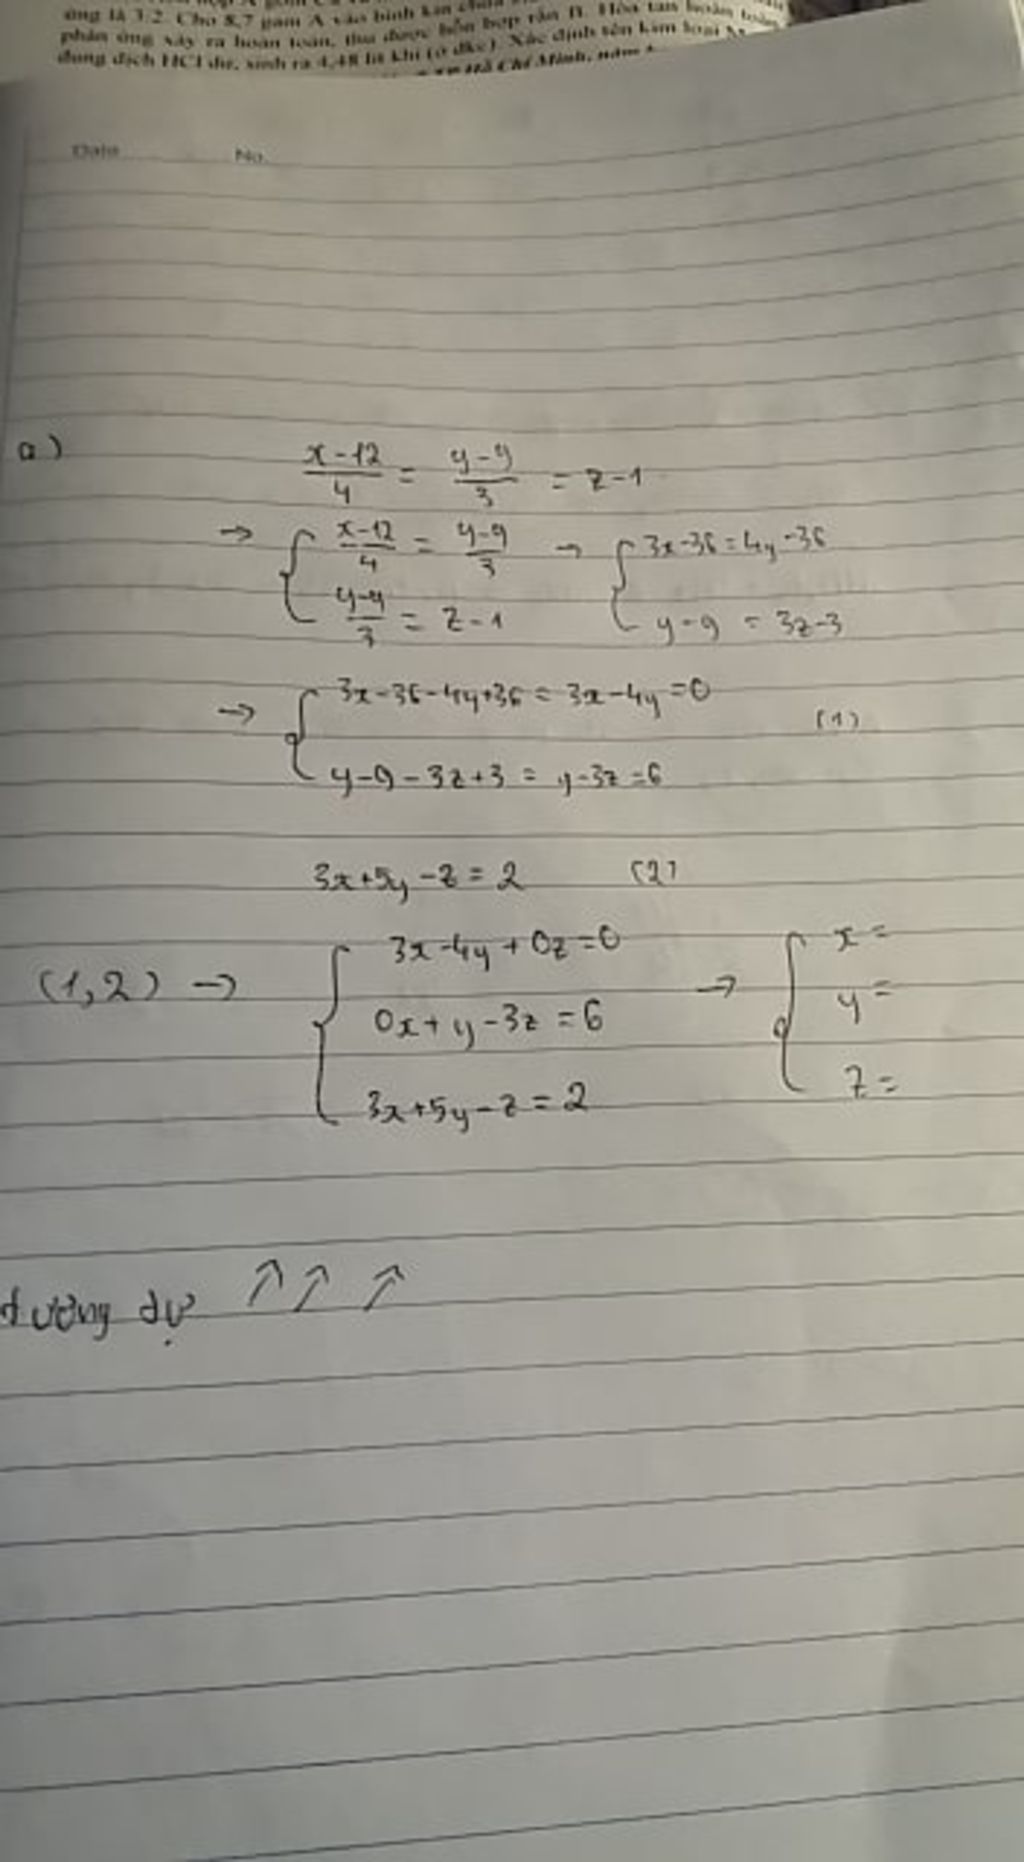 ứng là 3,2. Cho 8,7 gam A vào bình kín chứa
phản ứng xảy ra hoàn toàn, thu được hỗn hợp rắn B. Hòa tan hoàn toàn
dung dịch HCl dư, sinh ra 4,48 lít khí (ở đkc). Xác định tên kim loại M
Hồ Chí Minh, năm
Date No.
a) x-12/4 = y-9/3 = z-1
→ { x-12/4 = y-9/3 → { 3x-36=4y-36
y-9/3 = z-1 y-9 = 3z-3
→ { 3x-36-4y+36 = 3x-4y=0
(1)
y-9-3z+3 = y-3z=6
3x+5y-z=2 (2)
(1,2) → { 3x-4y+0z=0 → { x=
0x+y-3z=6 y=
3x+5y-z=2 z=
tương tự ↑ ↑ ↑